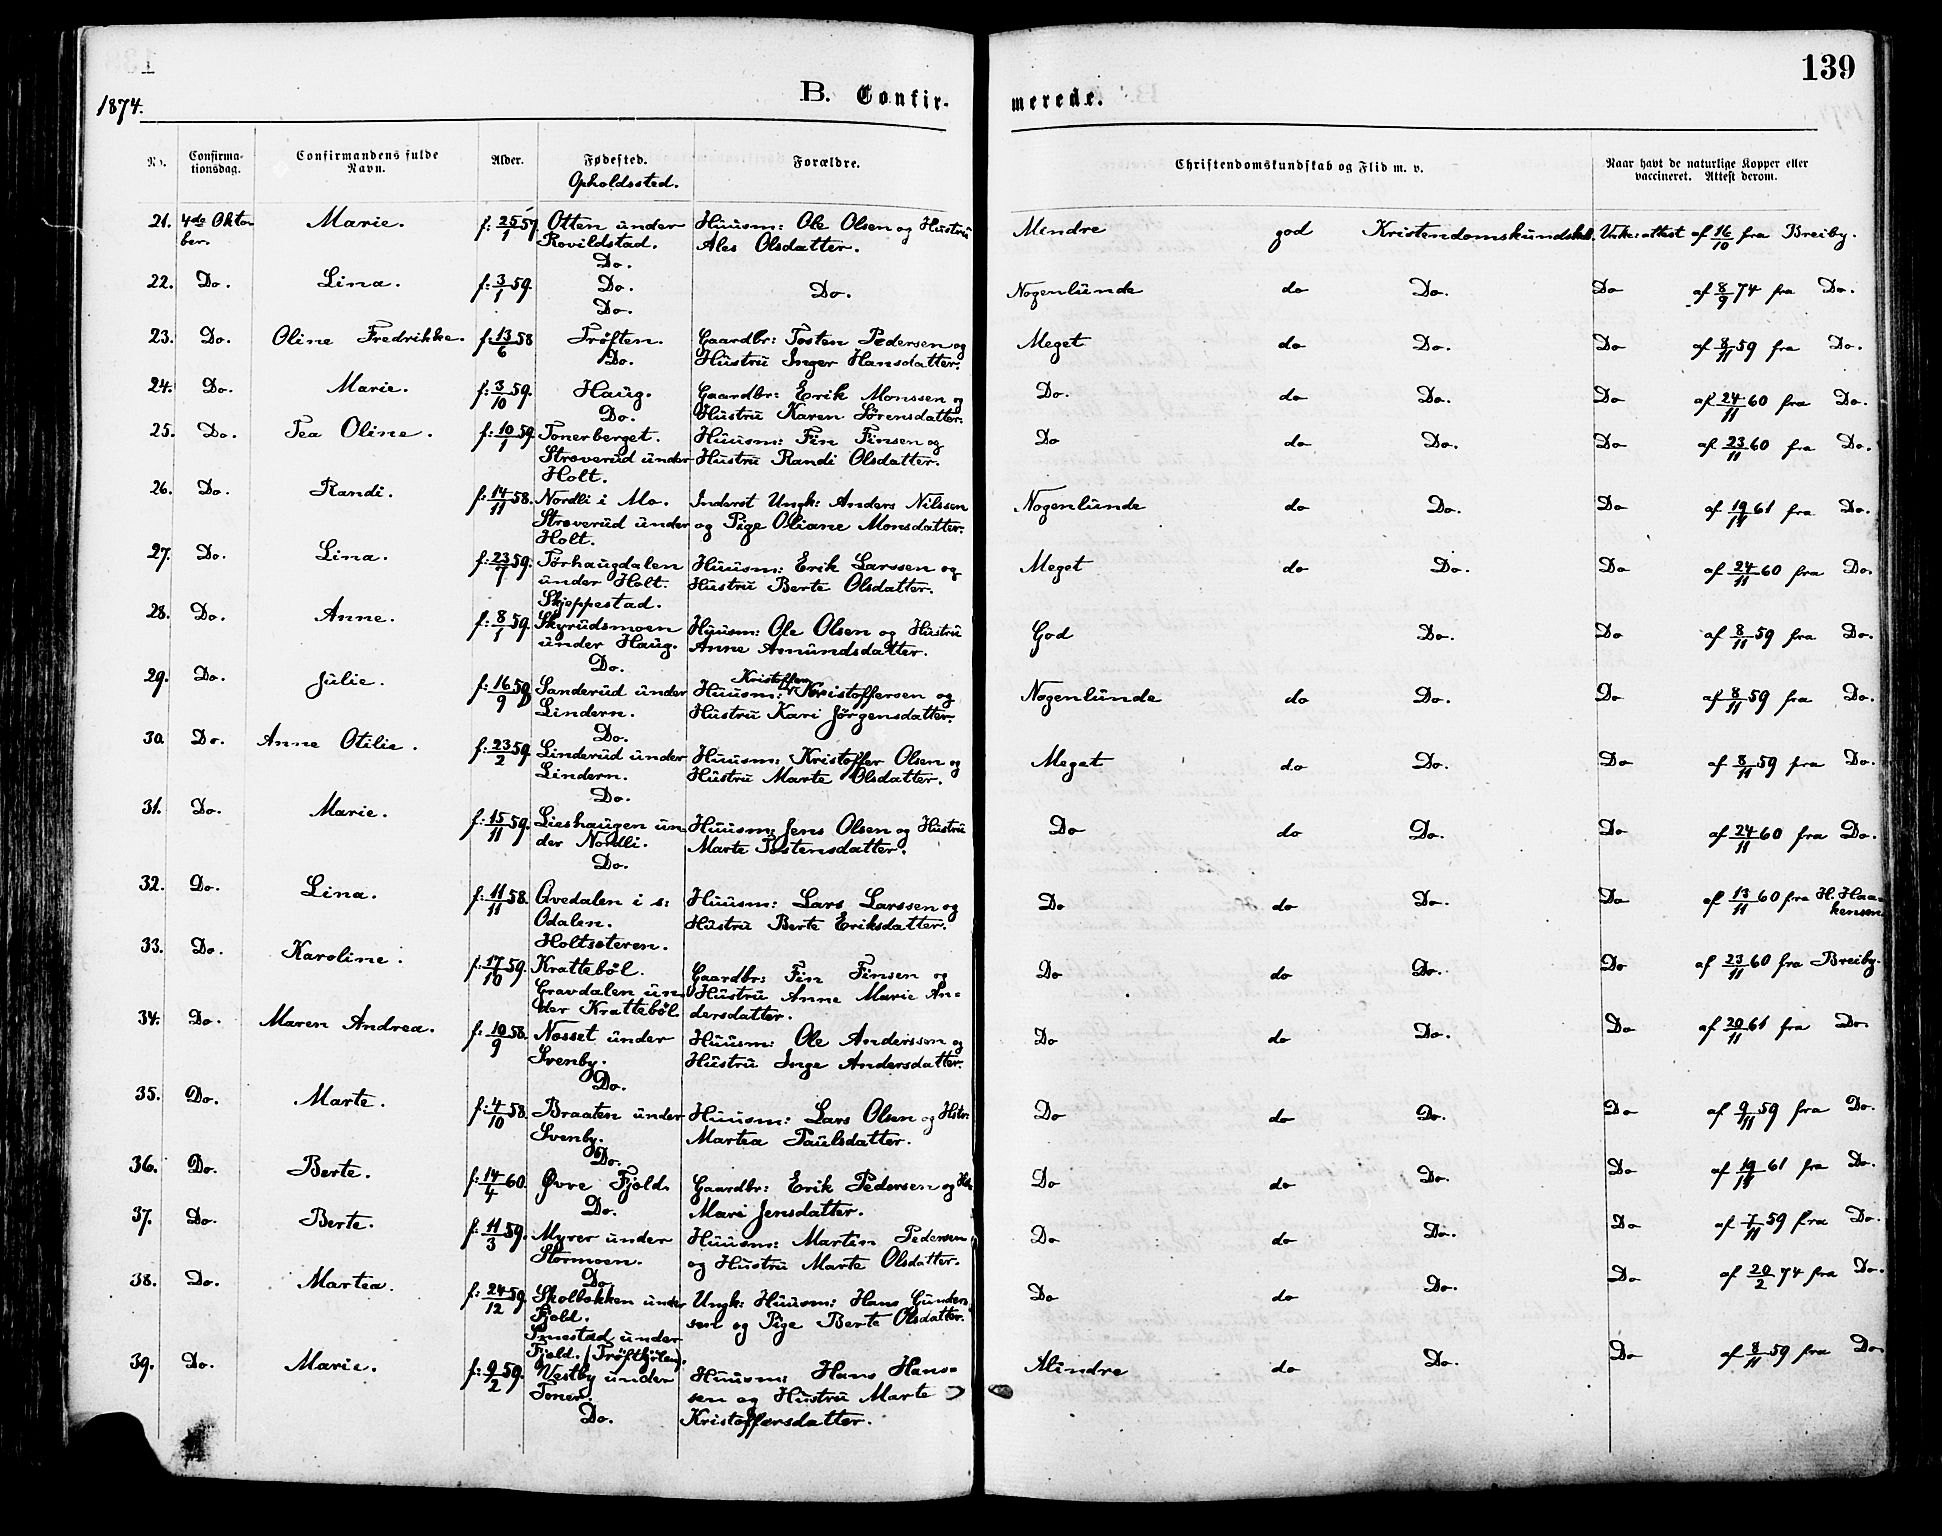 139
1874.
B. Confir-
merede.
No. Confirma-tionsdag. Confirmandens fulde Navn. Alder. Fødested. Forældre. Christendomskundskab og Flid m. v. Naar havt de naturlige Kopper eller vaccineret. Attest derom.
Opholdssted.
21. 4de Oktober. Marie. f: 25/1 57. Otten under Huusm: Ole Olsen og Hustru Mindre god Kristendomskundskab. Vak: attest af 16/10 fra Breiby.
Rovildstad. Ales Olsdatter.
Do.
22. Do. Lina. f: 3/1 59. Do. Do. Nogenlunde do Do. Do af 8/9 74 fra Do.
Do.
23. Do. Oline Fredrikke. f: 13/6 58 Trøften. Gaardbr: Tosten Pedersen og Meget do Do. Do af 8/11 59 fra Do.
Do. Hustru Inger Hansdatter.
24. Do. Marie. f: 3/10 59. Haug. Gaardbr: Erik Monssen og Do. do Do. Do af 24/11 60 fra Do.
Do. Hustru Karen Sörensdatter.
25. Do. Tea Oline. f: 10/1 59. Tonerberget. Huusm: Fin Finsen og Do do Do. Do af 23/11 60 fra Do.
Strøverud under Hustru Randi Olsdatter.
Holt.
26. Do. Randi. f: 14/11 58. Nordli i Mo. Inderst Ungk: Anders Nilssen Nogenlunde do Do. Do af 19/11 61 fra Do.
Strøverud under og Pige Oliane Monsdatter.
Holt.
27. Do. Lina. f: 23/7 59. Tørhaugdalen Huusm: Erik Larssen og Meget do Do. Do af 24/11 60 fra Do.
under Holt. Hustru Berte Olsdatter.
Skjeppestad.
28. Do. Anne. f: 8/1 59. Skyrudsmoen Huusm: Ole Olsen og Hustru God Do. Do af 8/11 59 fra Do.
under Haug. Anne Amundsdatter.
Do.
29. Do. Julie. f: 16/9 58 Sanderud under Huusm: Kristoffer Kristoffersen og Nogenlunde do Do. Do af 8/11 59 fra Do.
Lindern. Hustru Kari Jörgensdatter.
Do.
30. Do. Anne Otilie. f: 23/2 59 Linderud under Huusm: Kristoffer Olsen og Meget do Do. Do af 8/11 59 fra Do.
Lindern. Hustru Marte Olsdatter.
Do.
31. Do. Marie. f: 15/11 59. Lieshaugen un Huusm: Jens Olsen og Hustru Do do Do. Do af 24/11 60 fra Do.
der Nordli. Marte Tostensdatter.
Do.
32. Do. Lina. f: 11/11 58. Qvedalen i s: Huusm: Lars Larssen og Do do Do. Do af 13/11 60 fra H. Haa-
Odalen. Hustru Berte Eriksdatter. kensen
Holtsæteren.
33. Do. Karoline. f: 17/10 59. Krattebøl. Gaardbr: Fin Finsen og Do do Do. Do af 23/11 60 fra Breiby.
Gravdalen un Hustru Anne Marie An=
der Krattebøl dersdatter.
34. Do. Maren Andrea. f: 10/9 58. Næsset under Huusm: Ole Anderssen og Do do Do. Do af 20/11 61 fra Do.
Svenby. Hustru Inge Andersdatter.
Do.
35. Do. Marte. f: 4/10 58. Braaten under Huusm: Lars Olsen og Hstr: Do do Do. Do af 9/11 59 fra Do.
Svenby. Martea Paulsdatter.
Do.
36. Do. Berte. f: 14/4 60. Øvre Fjeld. Gaardbr: Erik Pedersen og Do do Do. Do af 19/11 61 fra Do.
Do. Mari Jensdatter.
37. Do. Berte. f: 11/3 59. Myrer under Huusm: Martin Pedersen Do do Do. Do af 7/11 59 fra Do.
Stormoen. og Hustru Marte Olsdatter.
Do.
38. Do. Martea. f: 24/12 59. Skolbækken under Ungk: Huusm: Hans Gunder Do do Do. Do af 20/2 74 fra Do.
Fjeld. sen og Pige Berte Olsdatter.
Smestad under
Fjeld. (Trøftkjølen).
39. Do. Marie. f: 9/2 59. Vestby under Huusm: Hans Hans= Mindre do Do. Do af 8/11 59 fra Do
Toner. sen og Hustru Marte
Do. Kristoffersdatter.